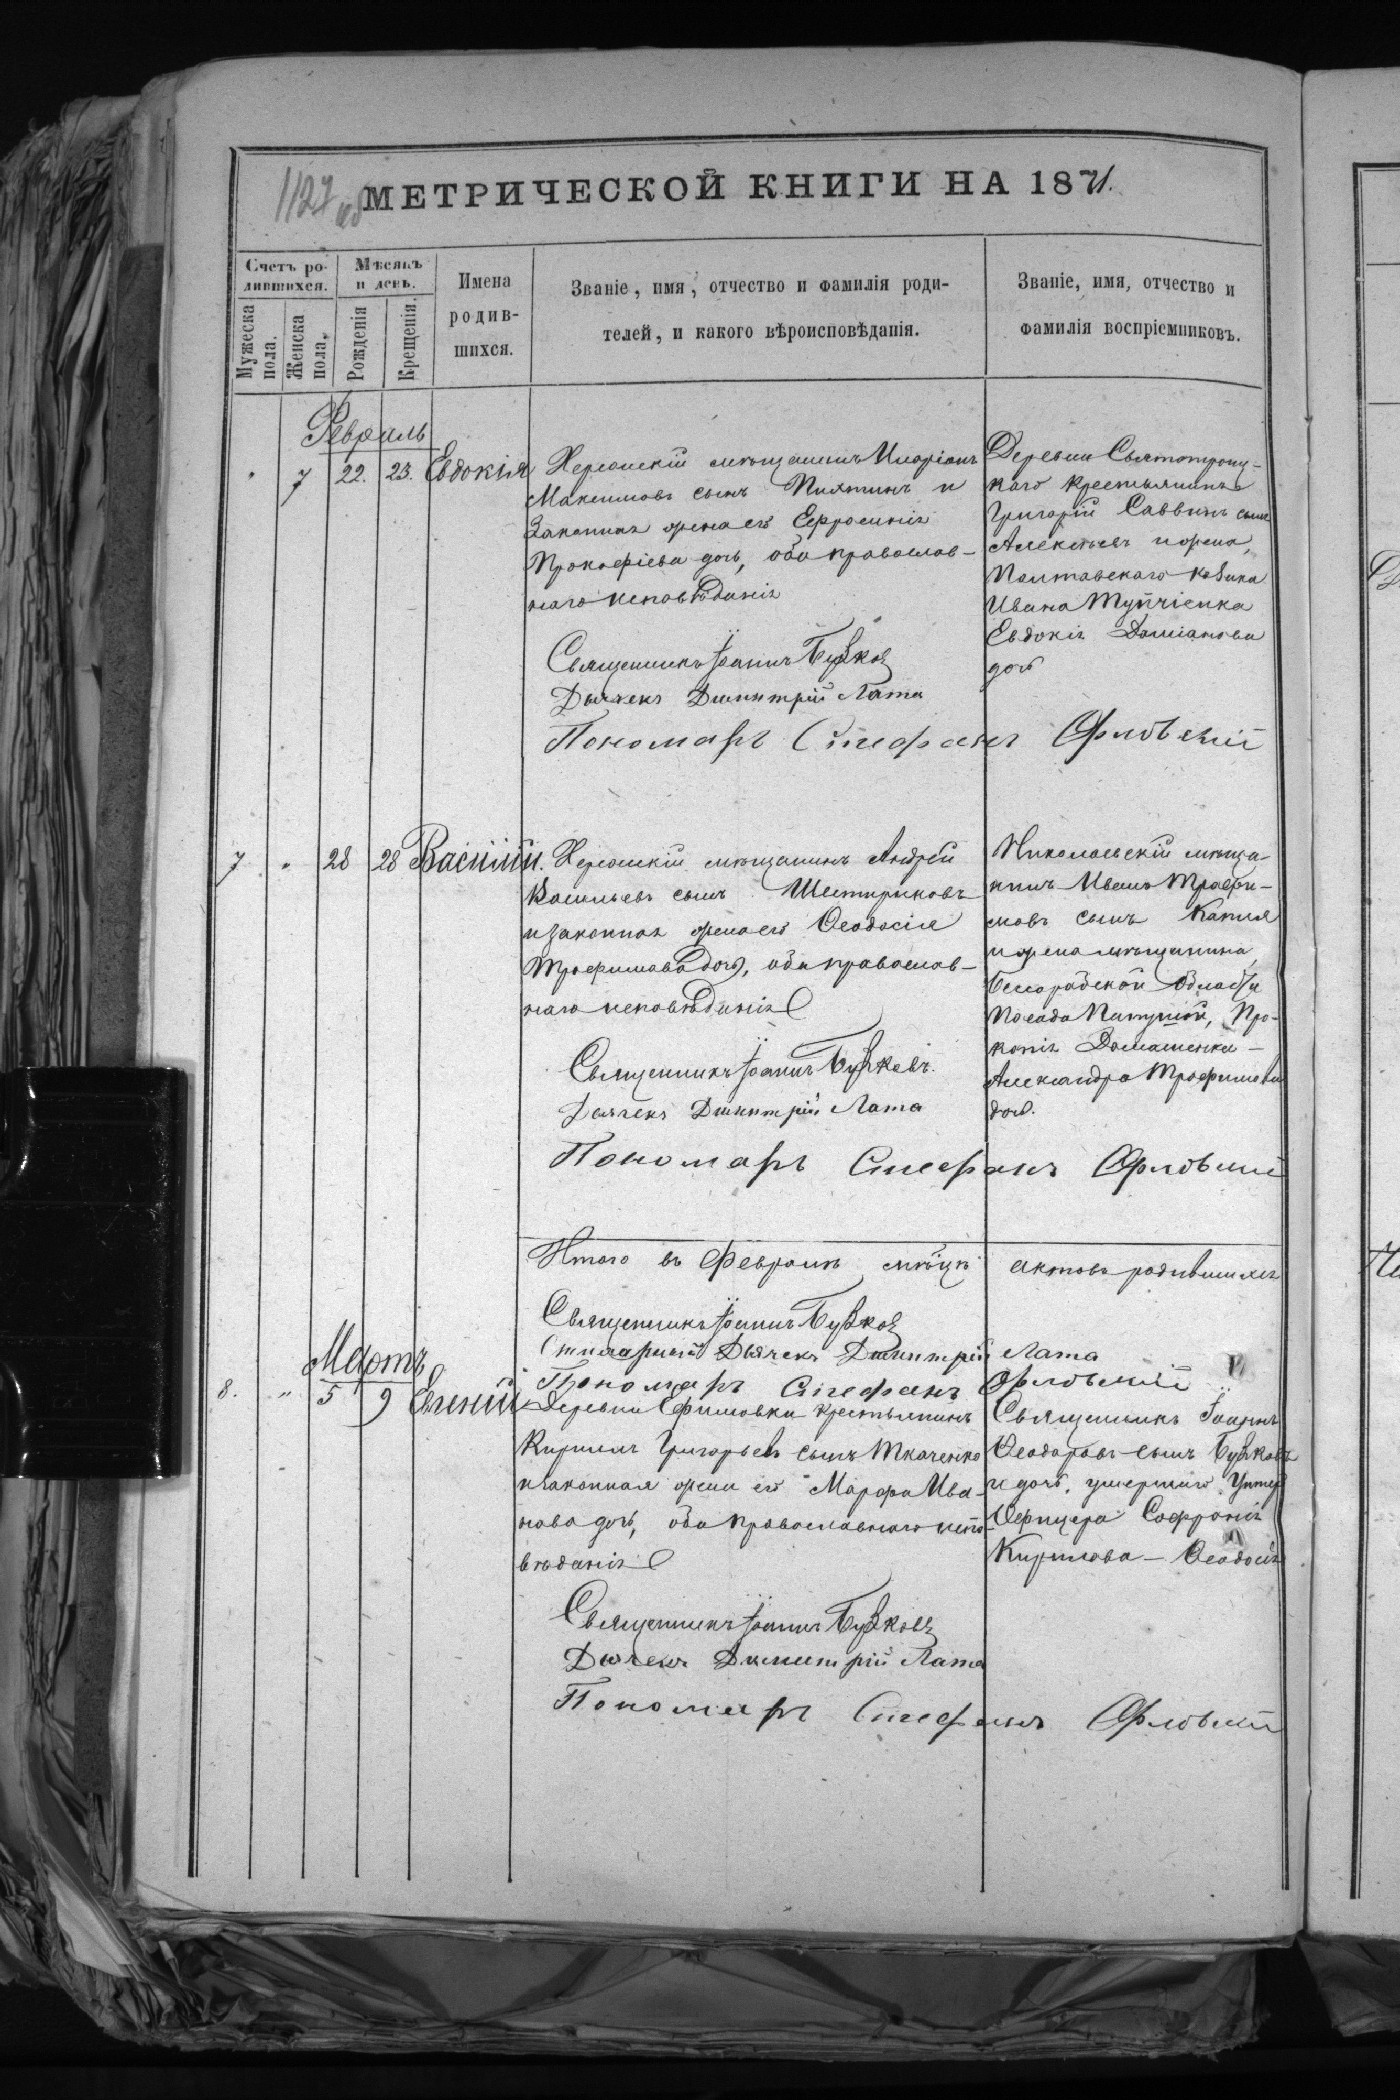 1127 об
МЕТРИЧЕСКОЙ КНИГИ НА 1871.
Счетъ ро-
дившихся.
Мѣсяцъ
и день.
Мужеска
пола.
Женска
пола.
Рожденія
Крещенія.
Имена
родив-
шихся.
Званіе, имя, отчество и фамилія роди-
телей, и какого вѣроисповѣданія.
Званіе, имя, отчество и
фамилія воспріемниковъ.
Февраль
" 7 22. 23. Евдокія
Херсонскій мѣщанинъ Иларіонъ
Максимовъ сынъ Пиятинъ и
законная жена его Ефросинія
Прокофіева дочь, оба православ-
наго исповѣданія
Священникъ Іоаннъ Бужковъ
Дьячекъ Димитрій Лата
Пономарь Стефанъ Орловскій
Деревни Святотроиц-
каго крестьянинъ
Григорій Саввинъ сынъ
Алексѣевъ и жена,
Полтавскаго козака
Ивана
Евдокія Даміанова
дочь
7 " 28 28 Василій.
Херсонскій мѣщанинъ Андрей
Васильевъ сынъ Шестириковъ
и законная жена его Ѳеодосія
Трофимова дочь, оба православ-
наго исповѣданія
Священникъ Іоаннъ Бужковъ.
Дьячекъ Димитрій Лата
Пономарь Стефанъ Орловскій
Николаевскій мѣща-
нинъ Иванъ Трофи-
мовъ сынъ Капля
и жена мѣщанина,
Бессарабской области
Посада Про-
копія Домашенка -
Александра Трофимова
дочь.
Итого въ Февралѣ мѣсяцѣ актовъ родившихся
Священникъ Іоаннъ Бужковъ
Дьячекъ Димитрій Лата
Пономарь Стефанъ Орловскій
Мартъ
8. " 5 9 Евгеній
Деревни Ефимовки крестьянинъ
Кириллъ Григорьевъ сынъ Ткаченко
и законная жена его Марфа Ива-
нова дочь, оба православнаго испо-
вѣданія
Священникъ Іоаннъ Бужковъ
Дьячекъ Димитрій Лата
Пономарь Стефанъ Орловскій
Священникъ Іоаннъ
Ѳеодоровъ сынъ Бужковъ
и дочь, умершаго Унтеръ
Офицера Софронія
Кирилова - Ѳеодосія